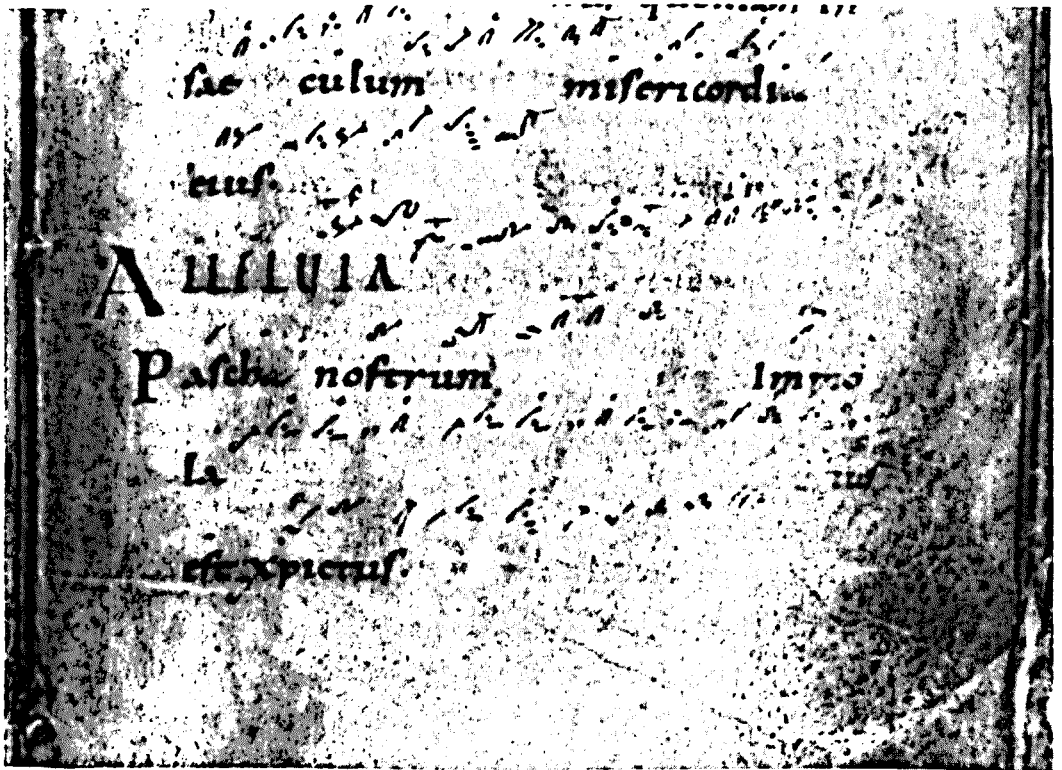 quoniam in
sae culum misericordia
eius.
ALLELUIA
Pascha nostrum Immo
la tus
est xpictus.